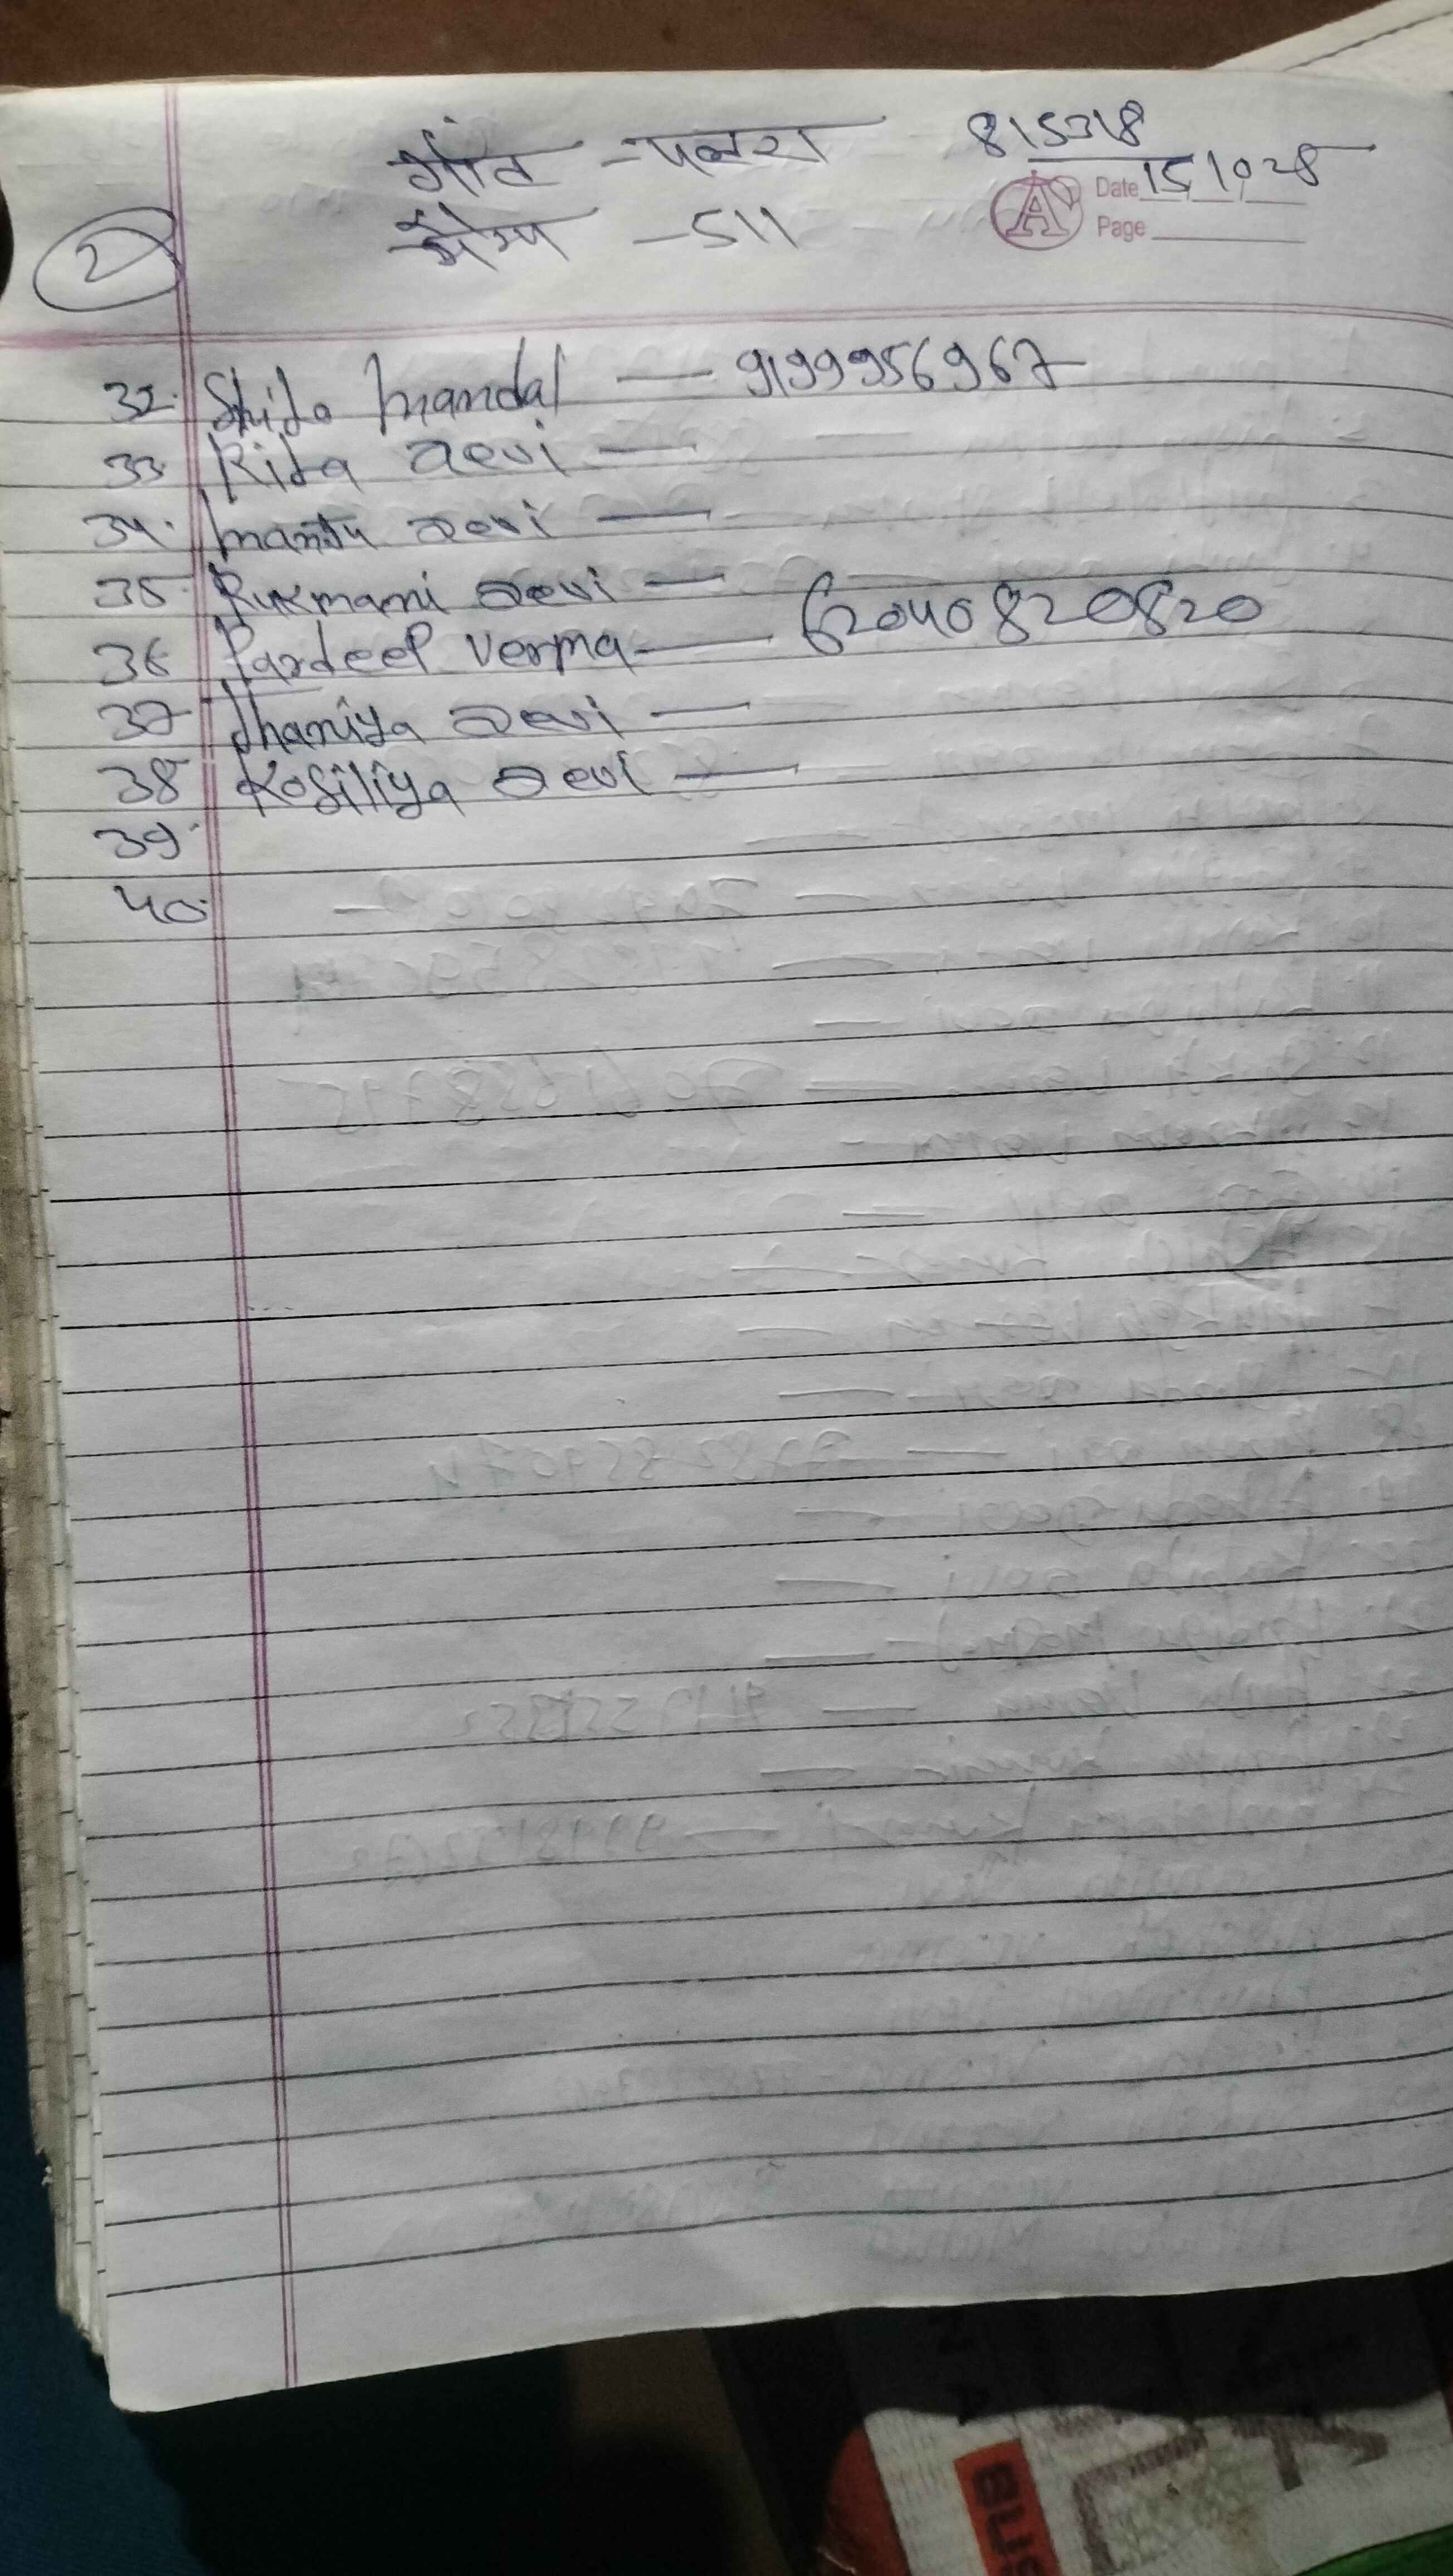 गांव - पलरा 815318
Date 15/10/25
Page
2
कैम्प - 511
32. Shila Mandal — 9199956967
33. Rita Devi —
34. Manju Devi —
35. Rukmani Devi —
36. Pardeep Verma — 62040820820
37. Jhaniya Devi —
38. Kosiliya Devi —
39.
40.